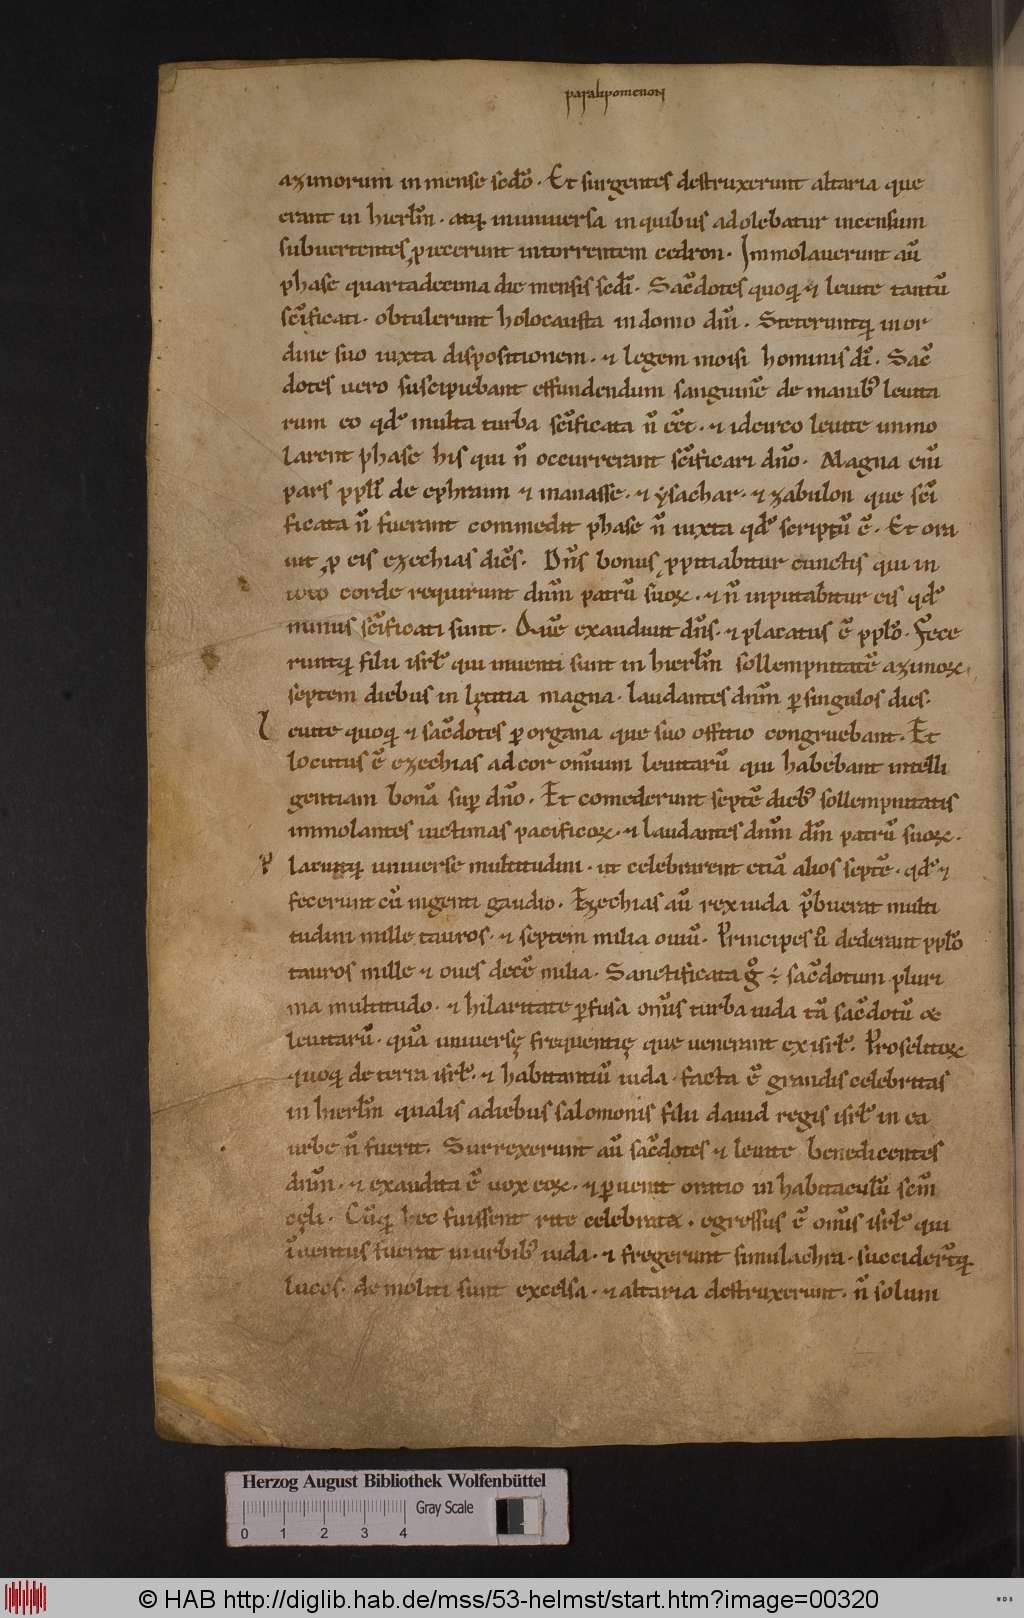 paralipomenon
azimorum in mense scdo. Et surgentes destruxerunt altaria que
erant in hierlm. atq; in uniuersa in quibus adolebatur incensum
subuertentes proiecerunt in torrentem cedron. Immolauerunt au̅
phase quartadecima die mensis scdi. Sac̅dotes quoq; ⁊ leuite tantu̅
sc̅ificati. obtulerunt holocausta in domo dn̅i. Steteruntq; in or
dine suo iuxta dispositionem. ⁊ legem moisi hominis di̅. Sac̅
dotes uero suscipiebant effundendum sanguine̅ de manib; leuita
rum eo qd̅ multa turba sc̅ificata n̅ e̅et. ⁊ idcirco leuite immo
larent phase his qui n̅ occurrerant sc̅ificari dn̅o. Magna eni̅
pars ppl̅i de ephraim ⁊ manasse. ⁊ ysachar. ⁊ zabulon que sc̅i
ficata n̅ fuerant commedit phase n̅ iuxta qd̅ scriptu̅ e̅. Et ora
uit ꝓ eis ezechias dice̅s. Dn̅s bonus ꝓpitiabitur cunctis qui in
toto corde requirunt dn̅m patru̅ suoꝝ. ⁊ n̅ inputabitur eis qd̅
minus sc̅ificati sunt. Que̅ exaudiuit dn̅s. ⁊ placatus e̅ ppl̅o. Fece
runtq; filii isrl̅ qui inuenti sunt in hierlm̅ sollempnitate̅ azimoꝝ
septem diebus in lętitia magna. laudantes dn̅m ꝑ singulos dies.
Leuite quoq; ⁊ sac̅dotes ꝑ organa que suo offitio congruebant. Et
locutus e̅ ezechias ad cor om̅ium leuitaru̅ qui habebant intelli
gentiam bona̅ sup̅ dn̅o. Et comederunt septe̅ dieb; sollempnitatis
immolantes uictimas pacificoꝝ. ⁊ laudantes dn̅m dm̅ patru̅ suoꝝ.
Placuitq; uniuerse multitudini. ut celebrarent etia̅ alios septe̅. qd̅ ⁊
fecerunt cu̅ ingenti gaudio. Ezechias au̅ rex iuda p̅buerat multi
tudini mille tauros. ⁊ septem milia ouiu̅. Principes u̅ dederant ppl̅o
tauros mille ⁊ oues dece̅ milia. Sanctificata gͦ ÷ sac̅dotum pluri
ma multitudo. ⁊ hilaritate ꝑfusa om̅is turba iuda ta̅ sac̅dotu̅ &
leuitaru̅. qua̅ uniuersę frequentię que uenerant ex isrl̅. Proselitoꝝ
quoq; de terra isrl̅. ⁊ habitantiu̅ iuda. facta e̅ grandis celebritas
in hierlm̅ qualis a diebus salomonis filii dauid regis isrl̅ in ea
urbe n̅ fuerit. Surrexerunt au̅ sac̅dotes ⁊ leuite benedicentes
dn̅m. ⁊ exaudita e̅ uox eoꝝ. ⁊ ꝑuenit oratio in habitaculu̅ scm̅
cęli. Cu̅q; hec fuissent rite celebrata. egressus e̅ om̅is isrl̅ qui
i̅uentus fuerat in urbib; iuda. ⁊ fregerunt simulachra. succideru̅tq;
lucos. demoliti sunt excelsa. ⁊ altaria destruxerunt. n̅ solum
Herzog August Bibliothek Wolfenbüttel
Gray Scale
0 1 2 3 4
© HAB http://diglib.hab.de/mss/53-helmst/start.htm?image=00320